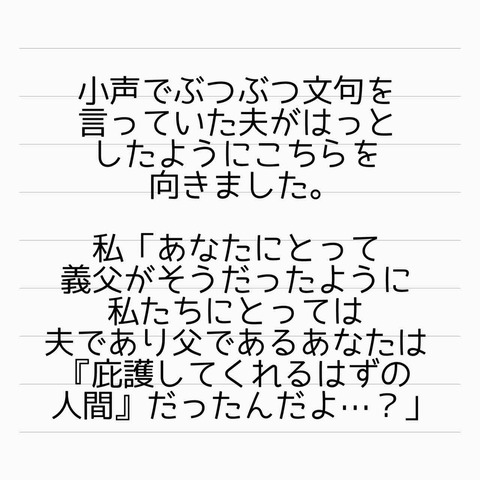 小声でぶつぶつ文句を
言っていた夫がはっと
したようにこちらを
向きました。
私「あなたにとって
義父がそうだったように
私たちにとっては
夫であり父であるあなたは
『庇護してくれるはずの
人間』だったんだよ…？」